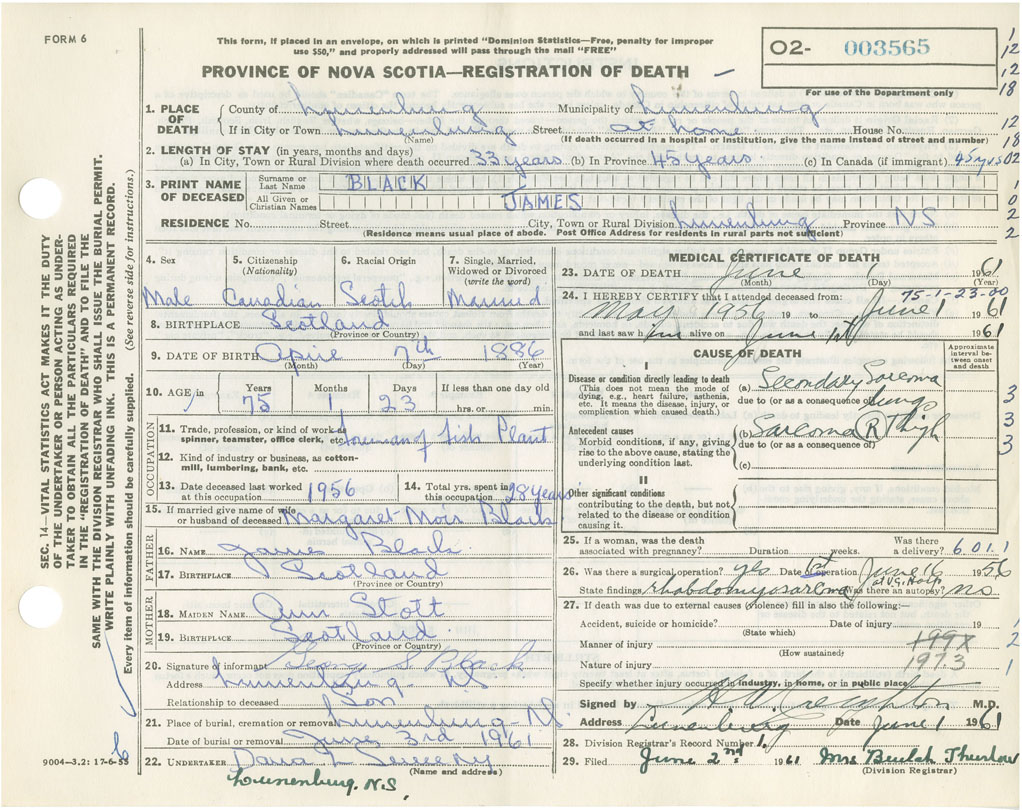 FORM 6
This form, if placed in an envelope, on which is printed "Dominion Statistics—Free, penalty for improper
use $50," and properly addressed will pass through the mail "FREE"
O2- 003565
For use of the Department only
PROVINCE OF NOVA SCOTIA—REGISTRATION OF DEATH
1. PLACE OF DEATH County of Lunenburg Municipality of Lunenburg
If in City or Town Lunenburg Street at home House No.
(Name) (If death occurred in a hospital or institution, give the name instead of street and number)
2. LENGTH OF STAY (in years, months and days)
(a) In City, Town or Rural Division where death occurred 33 years (b) In Province 45 years (c) In Canada (if immigrant) 45 yrs
3. PRINT NAME OF DECEASED Surname or Last Name BLACK
All Given or Christian Names JAMES
RESIDENCE No. Street City, Town or Rural Division Lunenburg Province NS
(Residence means usual place of abode. Post Office Address for residents in rural parts not sufficient)
4. Sex 5. Citizenship (Nationality) 6. Racial Origin 7. Single, Married, Widowed or Divorced (write the word)
Male Canadian Scotch Married
8. BIRTHPLACE Scotland
(Province or Country)
9. DATE OF BIRTH April 7th 1886
(Month) (Day) (Year)
10. AGE in Years Months Days If less than one day old
75 1 23 hrs. or min.
OCCUPATION
11. Trade, profession, or kind of work as spinner, teamster, office clerk, etc. Foreman of Fish Plant
12. Kind of industry or business, as cotton-mill, lumbering, bank, etc.
13. Date deceased last worked at this occupation 1956 14. Total yrs. spent in this occupation 28 years
15. If married give name of wife or husband of deceased Margaret Moir Black
FATHER
16. NAME James Black
17. BIRTHPLACE Scotland
(Province or Country)
MOTHER
18. MAIDEN NAME Ann Stott
19. BIRTHPLACE Scotland
(Province or Country)
20. Signature of informant George S Black
Address Lunenburg - NS
Relationship to deceased Son
21. Place of burial, cremation or removal Lunenburg - NS
Date of burial or removal June 3rd 1961
22. UNDERTAKER
(Name and address)
Lunenburg, N.S.
9004-3.2: 17-6-58
MEDICAL CERTIFICATE OF DEATH
23. DATE OF DEATH June 1 1961
(Month) (Day) (Year)
75-1-23-00
24. I HEREBY CERTIFY that I attended deceased from:
May 1956 19 to June 1 1961
and last saw him alive on June 1st 1961
CAUSE OF DEATH
Approximate interval between onset and death
I
Disease or condition directly leading to death (a) Secondary Sarcoma
(This does not mean the mode of dying, e.g., heart failure, asthenia, etc. It means the disease, injury, or complication which caused death.)
due to (or as a consequence of) lungs
Antecedent causes (b) Sarcoma (R) Thigh
Morbid conditions, if any, giving rise to the above cause, stating the underlying condition last.
due to (or as a consequence of)
(c)
II
Other significant conditions
contributing to the death, but not related to the disease or condition causing it.
25. If a woman, was the death associated with pregnancy? Duration weeks. Was there a delivery? 6.01.1
26. Was there a surgical operation? yes Date of operation June 16 1956
1st
at V.G. Hosp
State findings rhabdomyosarcoma Was there an autopsy? no
27. If death was due to external causes (violence) fill in also the following:—
Accident, suicide or homicide? Date of injury 19
(State which)
Manner of injury 199X
(How sustained)
Nature of injury 197.3
Specify whether injury occurred in industry, in home, or in public place
Signed by M.D.
Address Lunenburg Date June 1 1961
28. Division Registrar's Record Number 1.
29. Filed June 2nd 1961 Mrs Beulah Thurlow
(Division Registrar)
SEC. 14—VITAL STATISTICS ACT MAKES IT THE DUTY
OF THE UNDERTAKER OR PERSON ACTING AS UNDER-
TAKER TO OBTAIN ALL THE PARTICULARS REQUIRED
IN THE "REGISTRATION OF DEATH" AND TO FILE THE
SAME WITH THE DIVISION REGISTRAR WHO SHALL ISSUE THE BURIAL PERMIT.
WRITE PLAINLY WITH UNFADING INK. THIS IS A PERMANENT RECORD.
Every item of information should be carefully supplied. (See reverse side for instructions.)
1
12
12
18
12
18
02
1
0
2
2
3
3
3
1
2
1